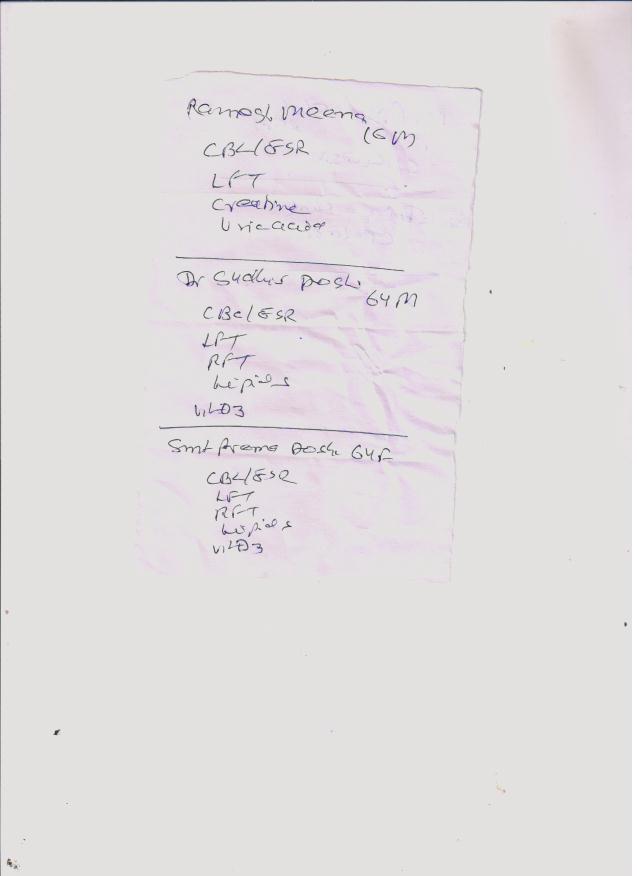 Ramesh Meena
16 M
CBC/ESR
LFT
Creatine
Uric acid
Dr Sudhir Doshi
64 M
CBC/ESR
LFT
RFT
Lipids
Vit D3
Smt Prema Doshi 64 F
CBC/ESR
LFT
RFT
Lipids
Vit D3